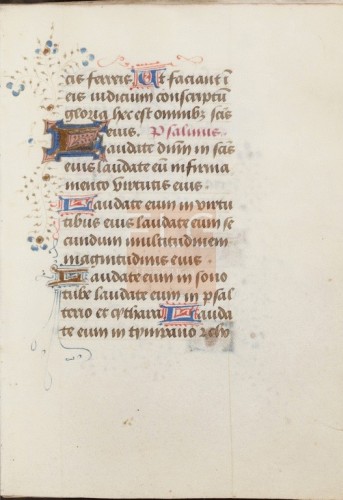 cis ferreis Ut faciant ĩ
eis iudicium conscriptũ
gloria hec est omnibꝫ scĩs
eius. Psalmus.
Laudate dñm in scĩs
eius laudate eũ in firma
mento virtutis eius.
Laudate eum in virtu
tibus eius laudate eum se
cundum multitudinem
magnitudinis eius.
Laudate eum in sono
tube laudate eum in psal
terio et cythara Lauda
te eum in tympano ⁊ cho